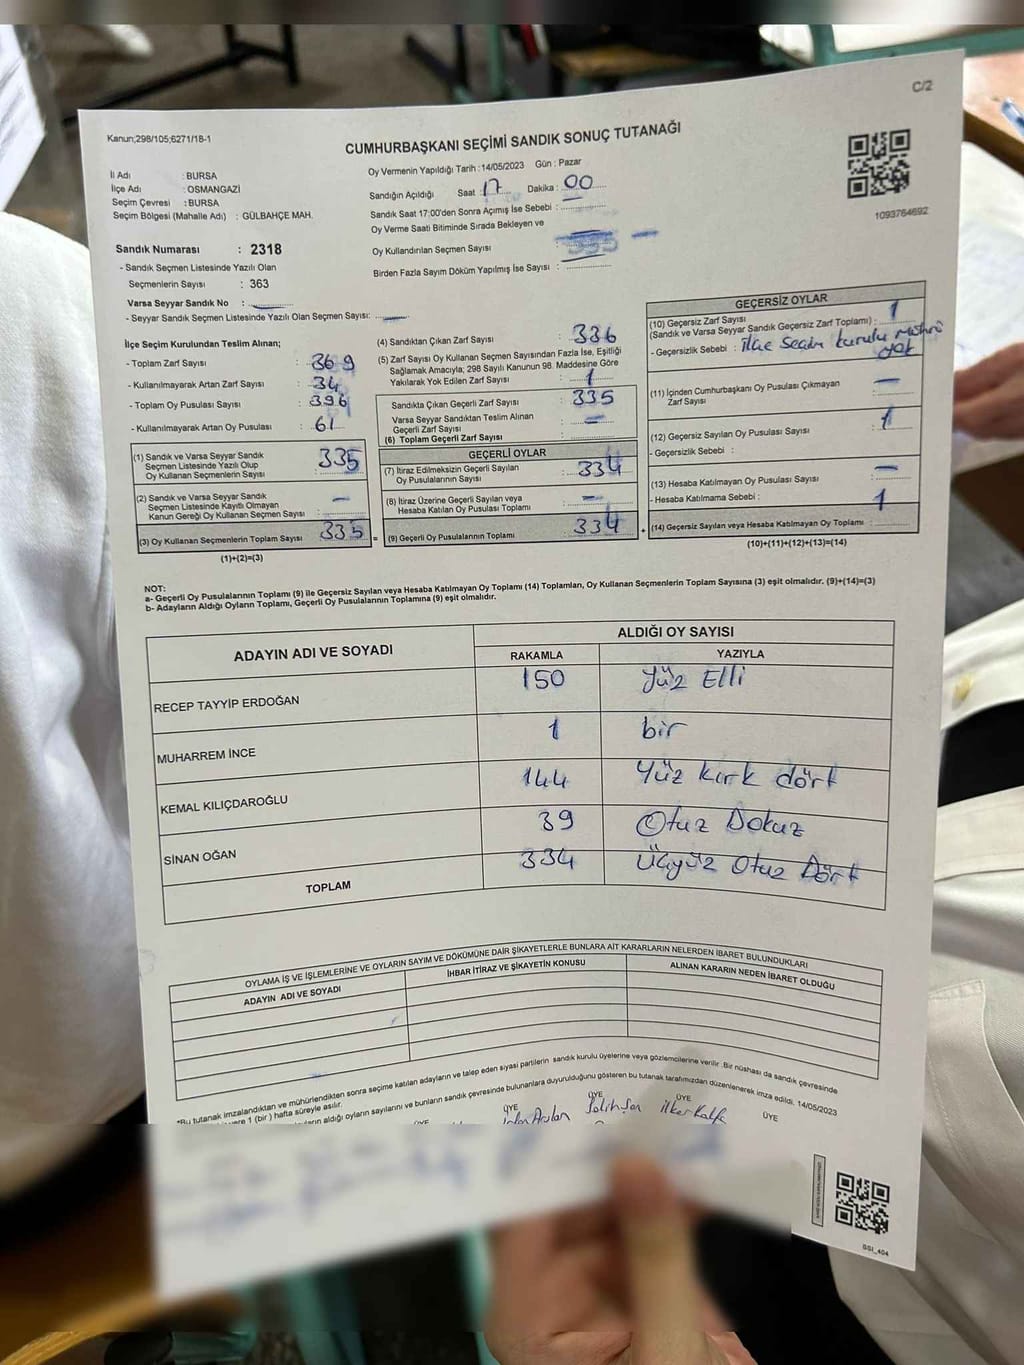 C/2
Kanun;298/105;6271/18-1
CUMHURBAŞKANI SEÇİMİ SANDIK SONUÇ TUTANAĞI
İl Adı : BURSA
İlçe Adı : OSMANGAZİ
Seçim Çevresi : BURSA
Seçim Bölgesi (Mahalle Adı) : GÜLBAHÇE MAH.
Oy Vermenin Yapıldığı Tarih : 14/05/2023 Gün : Pazar
Sandığın Açıldığı Saat 17 Dakika : 00
Sandık Saat 17:00'den Sonra Açımış İse Sebebi :
Oy Verme Saati Bitiminde Sırada Bekleyen ve
Oy Kullandırılan Seçmen Sayısı :
Birden Fazla Sayım Döküm Yapılmış İse Sayısı :
1093764692
Sandık Numarası : 2318
- Sandık Seçmen Listesinde Yazılı Olan
Seçmenlerin Sayısı : 363
Varsa Seyyar Sandık No :
- Seyyar Sandık Seçmen Listesinde Yazılı Olan Seçmen Sayısı:
İlçe Seçim Kurulundan Teslim Alınan;
- Toplam Zarf Sayısı : 369
- Kullanılmayarak Artan Zarf Sayısı : 34
- Toplam Oy Pusulası Sayısı : 396
- Kullanılmayarak Artan Oy Pusulası : 61
(1) Sandık ve Varsa Seyyar Sandık
Seçmen Listesinde Yazılı Olup
Oy Kullanan Seçmenlerin Sayısı : 335
(2) Sandık ve Varsa Seyyar Sandık
Seçmen Listesinde Kayıtlı Olmayan
Kanun Gereği Oy Kullanan Seçmen Sayısı : -
(3) Oy Kullanan Seçmenlerin Toplam Sayısı 335
(1)+(2)=(3)
(4) Sandıktan Çıkan Zarf Sayısı : 336
(5) Zarf Sayısı Oy Kullanan Seçmen Sayısından Fazla İse, Eşitliği
Sağlamak Amacıyla; 298 Sayılı Kanunun 98. Maddesine Göre
Yakılarak Yok Edilen Zarf Sayısı : 1
Sandıkta Çıkan Geçerli Zarf Sayısı : 335
Varsa Seyyar Sandıktan Teslim Alınan
Geçerli Zarf Sayısı : -
(6) Toplam Geçerli Zarf Sayısı :
GEÇERLİ OYLAR
(7) İtiraz Edilmeksizin Geçerli Sayılan
Oy Pusulalarının Sayısı : 334
(8) İtiraz Üzerine Geçerli Sayılan veya
Hesaba Katılan Oy Pusulası Toplamı : -
= (9) Geçerli Oy Pusulalarının Toplamı : 334 +
GEÇERSİZ OYLAR
(10) Geçersiz Zarf Sayısı
(Sandık ve Varsa Seyyar Sandık Geçersiz Zarf Toplamı) : 1
- Geçersizlik Sebebi : ilçe Seçim kurulu Mührü
yok
(11) İçinden Cumhurbaşkanı Oy Pusulası Çıkmayan
Zarf Sayısı : -
(12) Geçersiz Sayılan Oy Pusulası Sayısı : 1
- Geçersizlik Sebebi :
(13) Hesaba Katılmayan Oy Pusulası Sayısı : -
- Hesaba Katılmama Sebebi :
(14) Geçersiz Sayılan veya Hesaba Katılmayan Oy Toplamı : 1
(10)+(11)+(12)+(13)=(14)
NOT:
a- Geçerli Oy Pusulalarının Toplamı (9) ile Geçersiz Sayılan veya Hesaba Katılmayan Oy Toplamı (14) Toplamları, Oy Kullanan Seçmenlerin Toplam Sayısına (3) eşit olmalıdır. (9)+(14)=(3)
b- Adayların Aldığı Oyların Toplamı, Geçerli Oy Pusulalarının Toplamına (9) eşit olmalıdır.
ADAYIN ADI VE SOYADI ALDIĞI OY SAYISI
RAKAMLA YAZIYLA
RECEP TAYYİP ERDOĞAN 150 Yüz Elli
MUHARREM İNCE 1 bir
KEMAL KILIÇDAROĞLU 144 Yüz kırk dört
SİNAN OĞAN 39 Otuz Dokuz
TOPLAM 334 Üçyüz Otuz Dört
OYLAMA İŞ VE İŞLEMLERİNE VE OYLARIN SAYIM VE DÖKÜMÜNE DAİR ŞİKAYETLERLE BUNLARA AİT KARARLARIN NELERDEN İBARET BULUNDUKLARI
ADAYIN ADI VE SOYADI İHBAR İTİRAZ VE ŞİKAYETİN KONUSU ALINAN KARARIN NEDEN İBARET OLDUĞU
*Bu tutanak imzalandıktan ve mühürlendikten sonra seçime katılan adayların ve talep eden siyasi partilerin sandık kurulu üyelerine veya gözlemcilerine verilir. Bir nüshası da sandık çevresinde
üzere 1 (bir) hafta süreyle asılır.
aldığı oyların sayılarını ve bunların sandık çevresinde bulunanlara duyurulduğunu gösteren bu tutanak tarafımızdan düzenlenerek imza edildi. 14/05/2023
ÜYE ÜYE ÜYE ÜYE ÜYE
Arslan Salih Şen ilker Kalfa
SSI_404